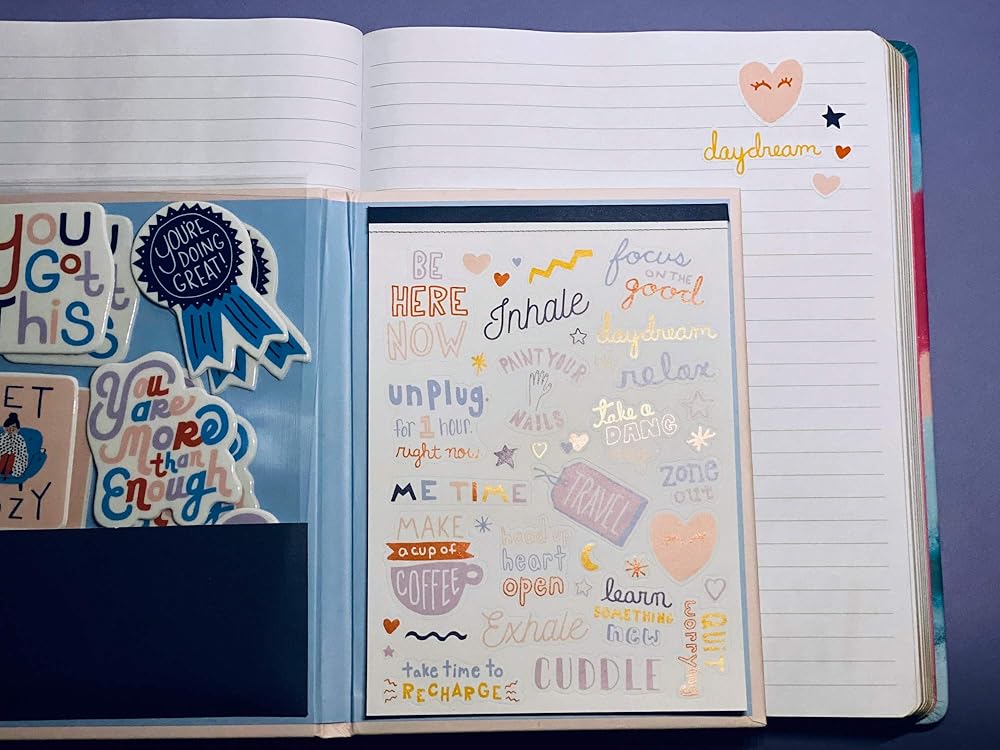 daydream
YOU
GOT
THIS
YOU'RE
DOING
GREAT!
ET
ZY
You
are
more
than
Enough
BE
HERE
NOW
Inhale
focus
ON THE
good
daydream
PAINT YOUR
NAILS
relax
unplug
for 1 hour.
right now.
take a
DANG
ME TIME
TRAVEL
zone
out
MAKE
a cup of
COFFEE
head up
heart
open
learn
SOMETHING
new
QUIT
worrying
Exhale
take time to
RECHARGE
CUDDLE